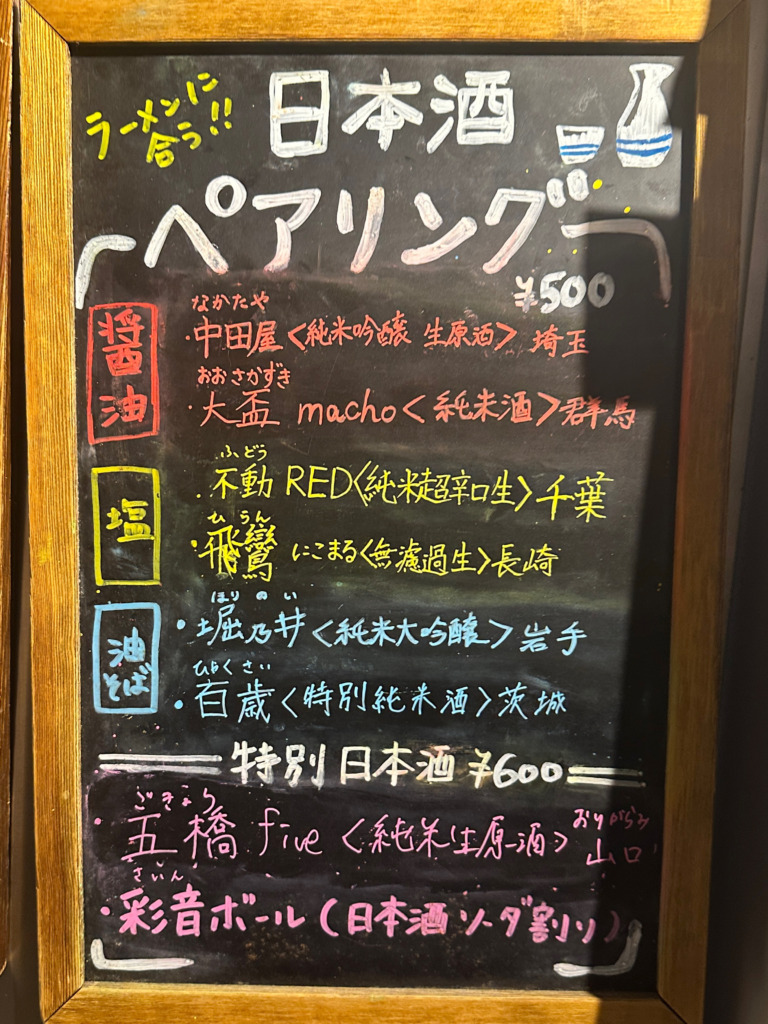 ラーメンに
合う!!
日本酒
ペアリング
¥500
醤油
なかたや
・中田屋〈純米吟醸 生原酒〉 埼玉
おおさかずき
・大盃 macho〈純米酒〉群馬
塩
ふどう
・不動 RED〈純米超辛口生〉千葉
ひらん
・飛鸞 にこまる〈無濾過生〉長崎
油そば
ほりのい
・堀乃井〈純米大吟醸〉岩手
ひゃくさい
・百歳〈特別純米酒〉茨城
特別日本酒 ¥600
ごきょう
・五橋 five〈純米生原酒〉山口
おりがらみ
さいん
・彩音ボール(日本酒ソーダ割り)